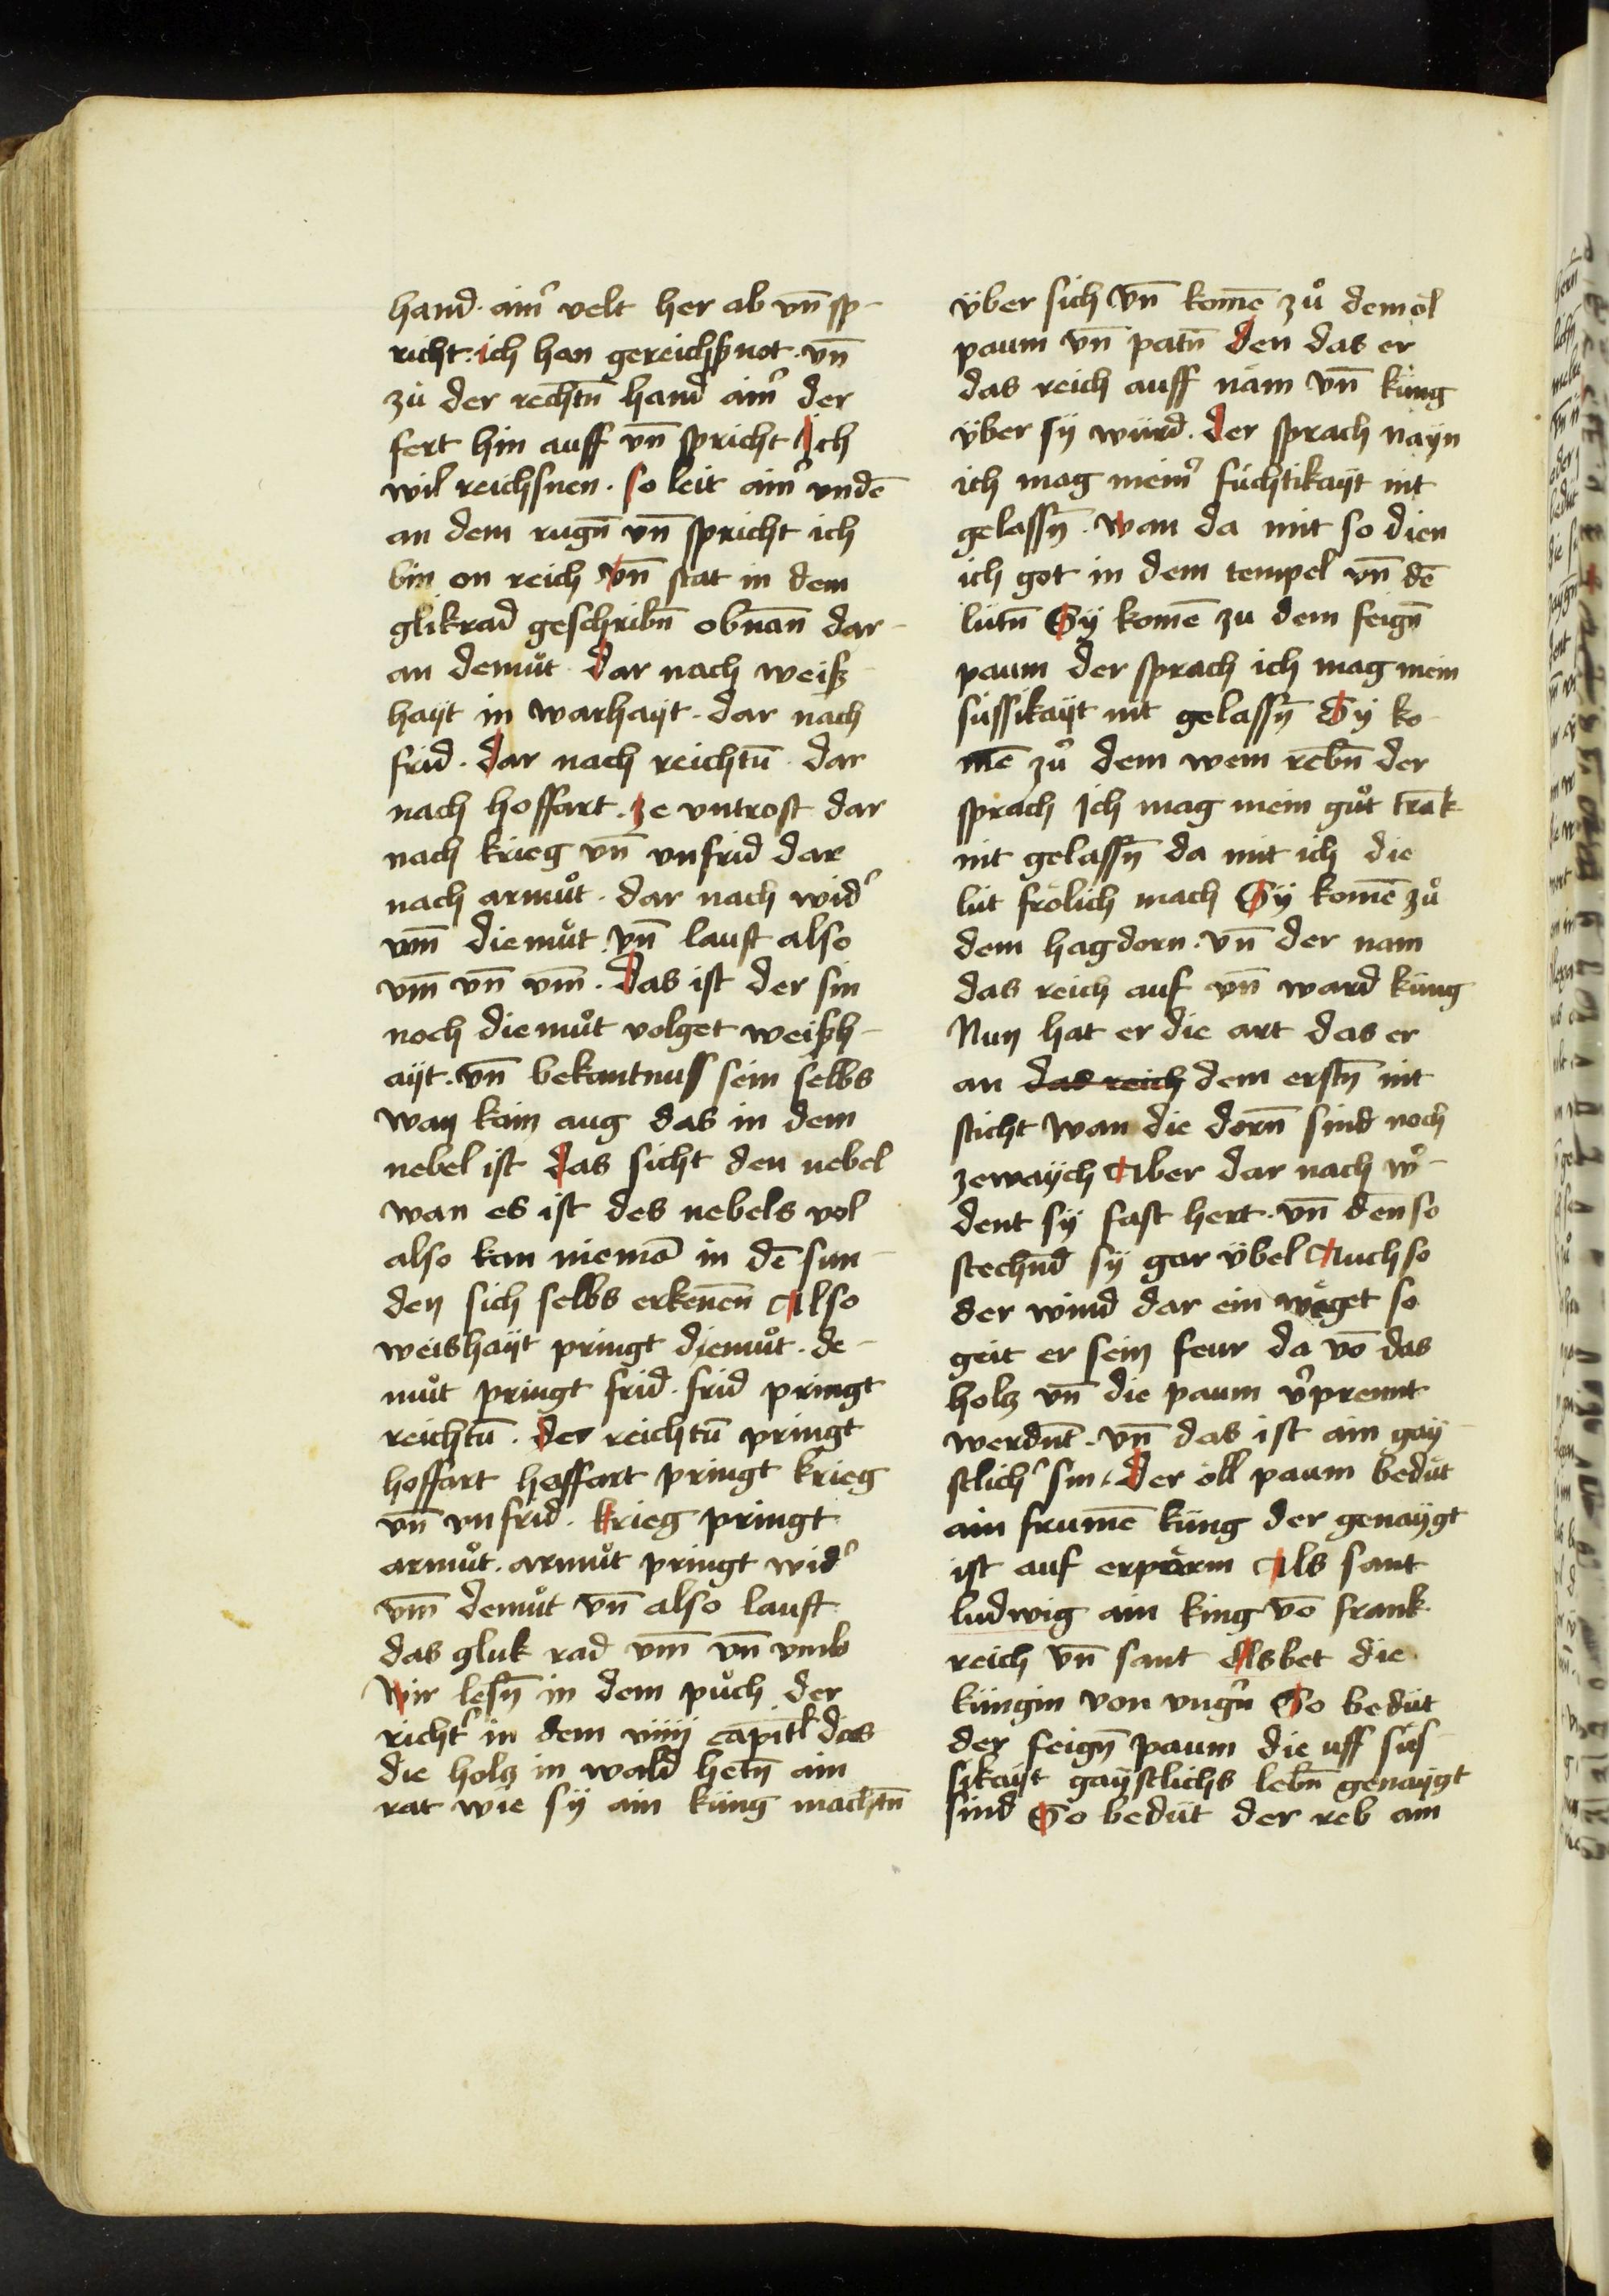 hand · aim̾ velt her ab vn̄ sp-
richt · ich han gereichsnot · vn̄
zů der rechtn̄ hand aim̾ der
fert hin auff vn̄ spricht Ich
wil reichsnen · so leit aim̾ vndē
an dem rugn̄ vn̄ spricht ich
bin on reich vn̄ stat in dem
glikrad geschribn̄ obnan̄ dar-
an demůt · dar nach weiß-
hayt in warhayt · dar nach
frid · dar nach reichtū · dar
nach hoffart · ze vntrost dar
nach krieg vn̄ vnfrid dar
nach armůt · dar nach wid̾
vm̄ diemůt · vn̄ lauft also
vm̄ vn̄ vm̄ · das ist der sin
noch diemůt volget weißh-
ayt · vn̄ bekantnuss sein selbs
wan kain aug das in dem
nebel ist das sicht den nebel
wan es ist des nebels vol
also kan niemā in dē sun-
den sich selbs erkenen̄ Also
weishayt pringt diemůt · de-
můt pringt frid · frid pringt
reichtū · der reichtū pringt
hoffart hoffart pringt krieg
vn̄ vnfrid · krieg pringt
armůt · armůt pringt wid̾
vm̄ demůt vn̄ also lauft
das gluk rad vm̄ vn̄ vmb
Wir lesn̄ in dem půch der
richt̾ in dem viiij capitl das
die holz in wald hetn̄ ain
rat wie sy ain küng machtn̄
über sich vn̄ komē zů dem öl
paum vn̄ patn̄ den das er
das reich auff näm vn̄ küng
über sy würd · der sprach nayn
ich mag meim̾ füchtikayt nit
gelassn̄ · wan da mit so dien
ich got in dem tempel vn̄ dē
lütn̄ Sy komē zu dem feign̄
paum der sprach ich mag mein
süssikayt nit gelassn̄ Sy ko-
mē zů dem wein rebn̄ der
sprach Ich mag mein gůt trāk
nit gelassn̄ da mit ich die
lüt frölich mach Sy komē zů
dem hagdorn · vn̄ der nam
das reich auf vn̄ ward küng
Nun hat er die art das er
an das reich dem erstn̄ nit
sticht wan die dorn̄ sind noch
zewaych Aber dar nach w̾-
dent sy fast hert · vn̄ den so
stechnd sy gar übel Auch so
der wind dar ein wäget so
geit er sein feur da vō das
holz vn̄ die paum v̾prennt
werdnt · vn̄ das ist ain gay-
stlich̾ sin · Der öll paum bedüt
ain frumē küng der genaygt
ist auf erparm Als sant
ludwig ain king vō frank-
reich vn̄ sant Elsbet die
küngin von vng̾n So bedüt
der feign̄ paum die uff süs-
sikayt gaystlichs lebn̄ genaygt
sind So bedüt der reb ain